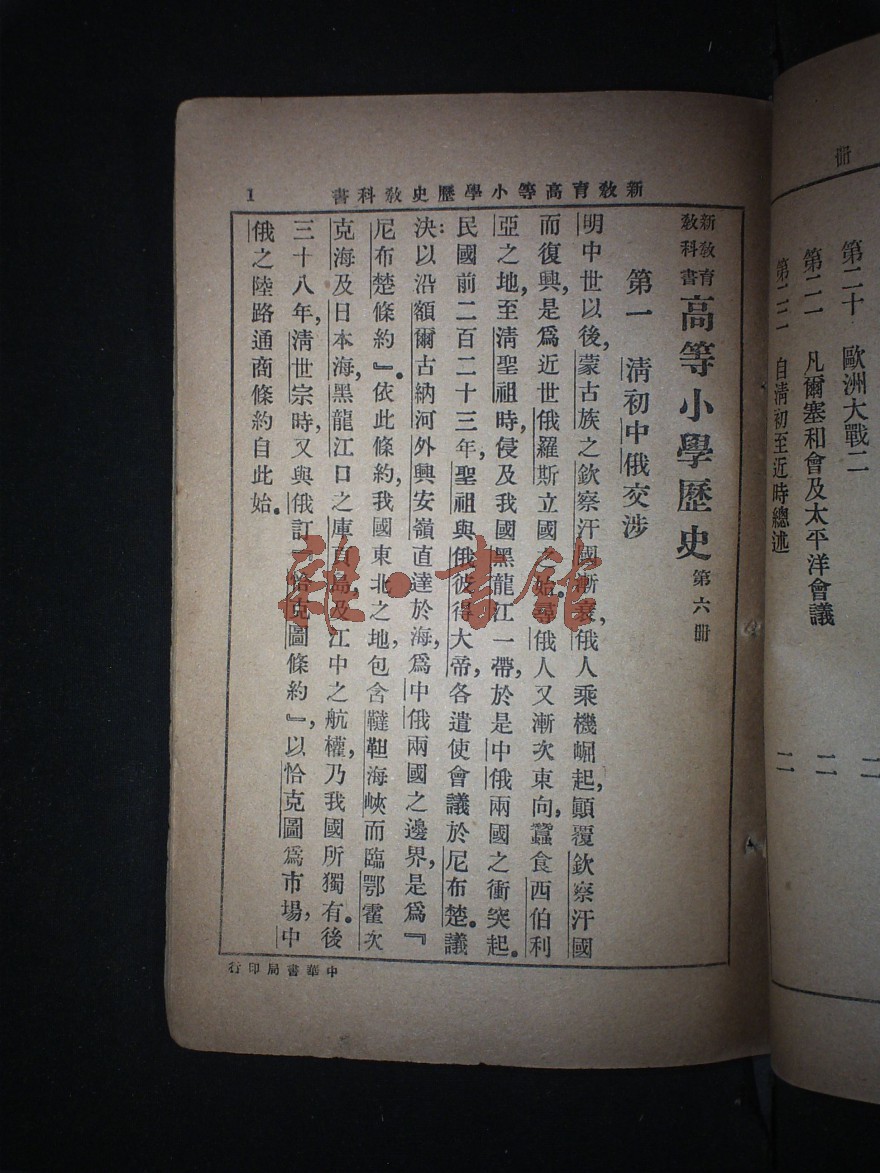 冊
第二十 歐洲大戰二
第二一 凡爾塞和會及太平洋會議
第二二 自清初至近時總述
二
二
新教育高等小學歷史教科書
1
新教育教科書 高等小學歷史 第六冊
第一 清初中俄交涉
明中世以後，蒙古族之欽察汗國漸衰，俄人乘機崛起，顛覆欽察汗國
而復興，是爲近世俄羅斯立國之始。尋俄人又漸次東向，蠶食西伯利
亞之地，至清聖祖時，侵及我國黑龍江一帶，於是中俄兩國之衝突起。
民國前二百二十三年，聖祖與俄彼得大帝，各遣使會議於尼布楚。議
決：以沿額爾古納河外興安嶺直達於海，爲中俄兩國之邊界，是爲『
尼布楚條約』。依此條約，我國東北之地，包含韃靼海峽而臨鄂霍次
克海及日本海，黑龍江口之庫頁島，及江中之航權，乃我國所獨有。後
三十八年，清世宗時，又與俄訂『恰克圖條約』，以恰克圖爲市場，中
俄之陸路通商條約自此始。
中華書局印行
雜·書館